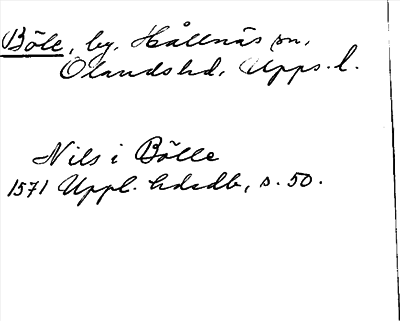 Böle, by, Hållnäs sn,
Olands hd, Upps. l.
Nils i Bölle
1571 Uppl. hdsdb, s. 50.